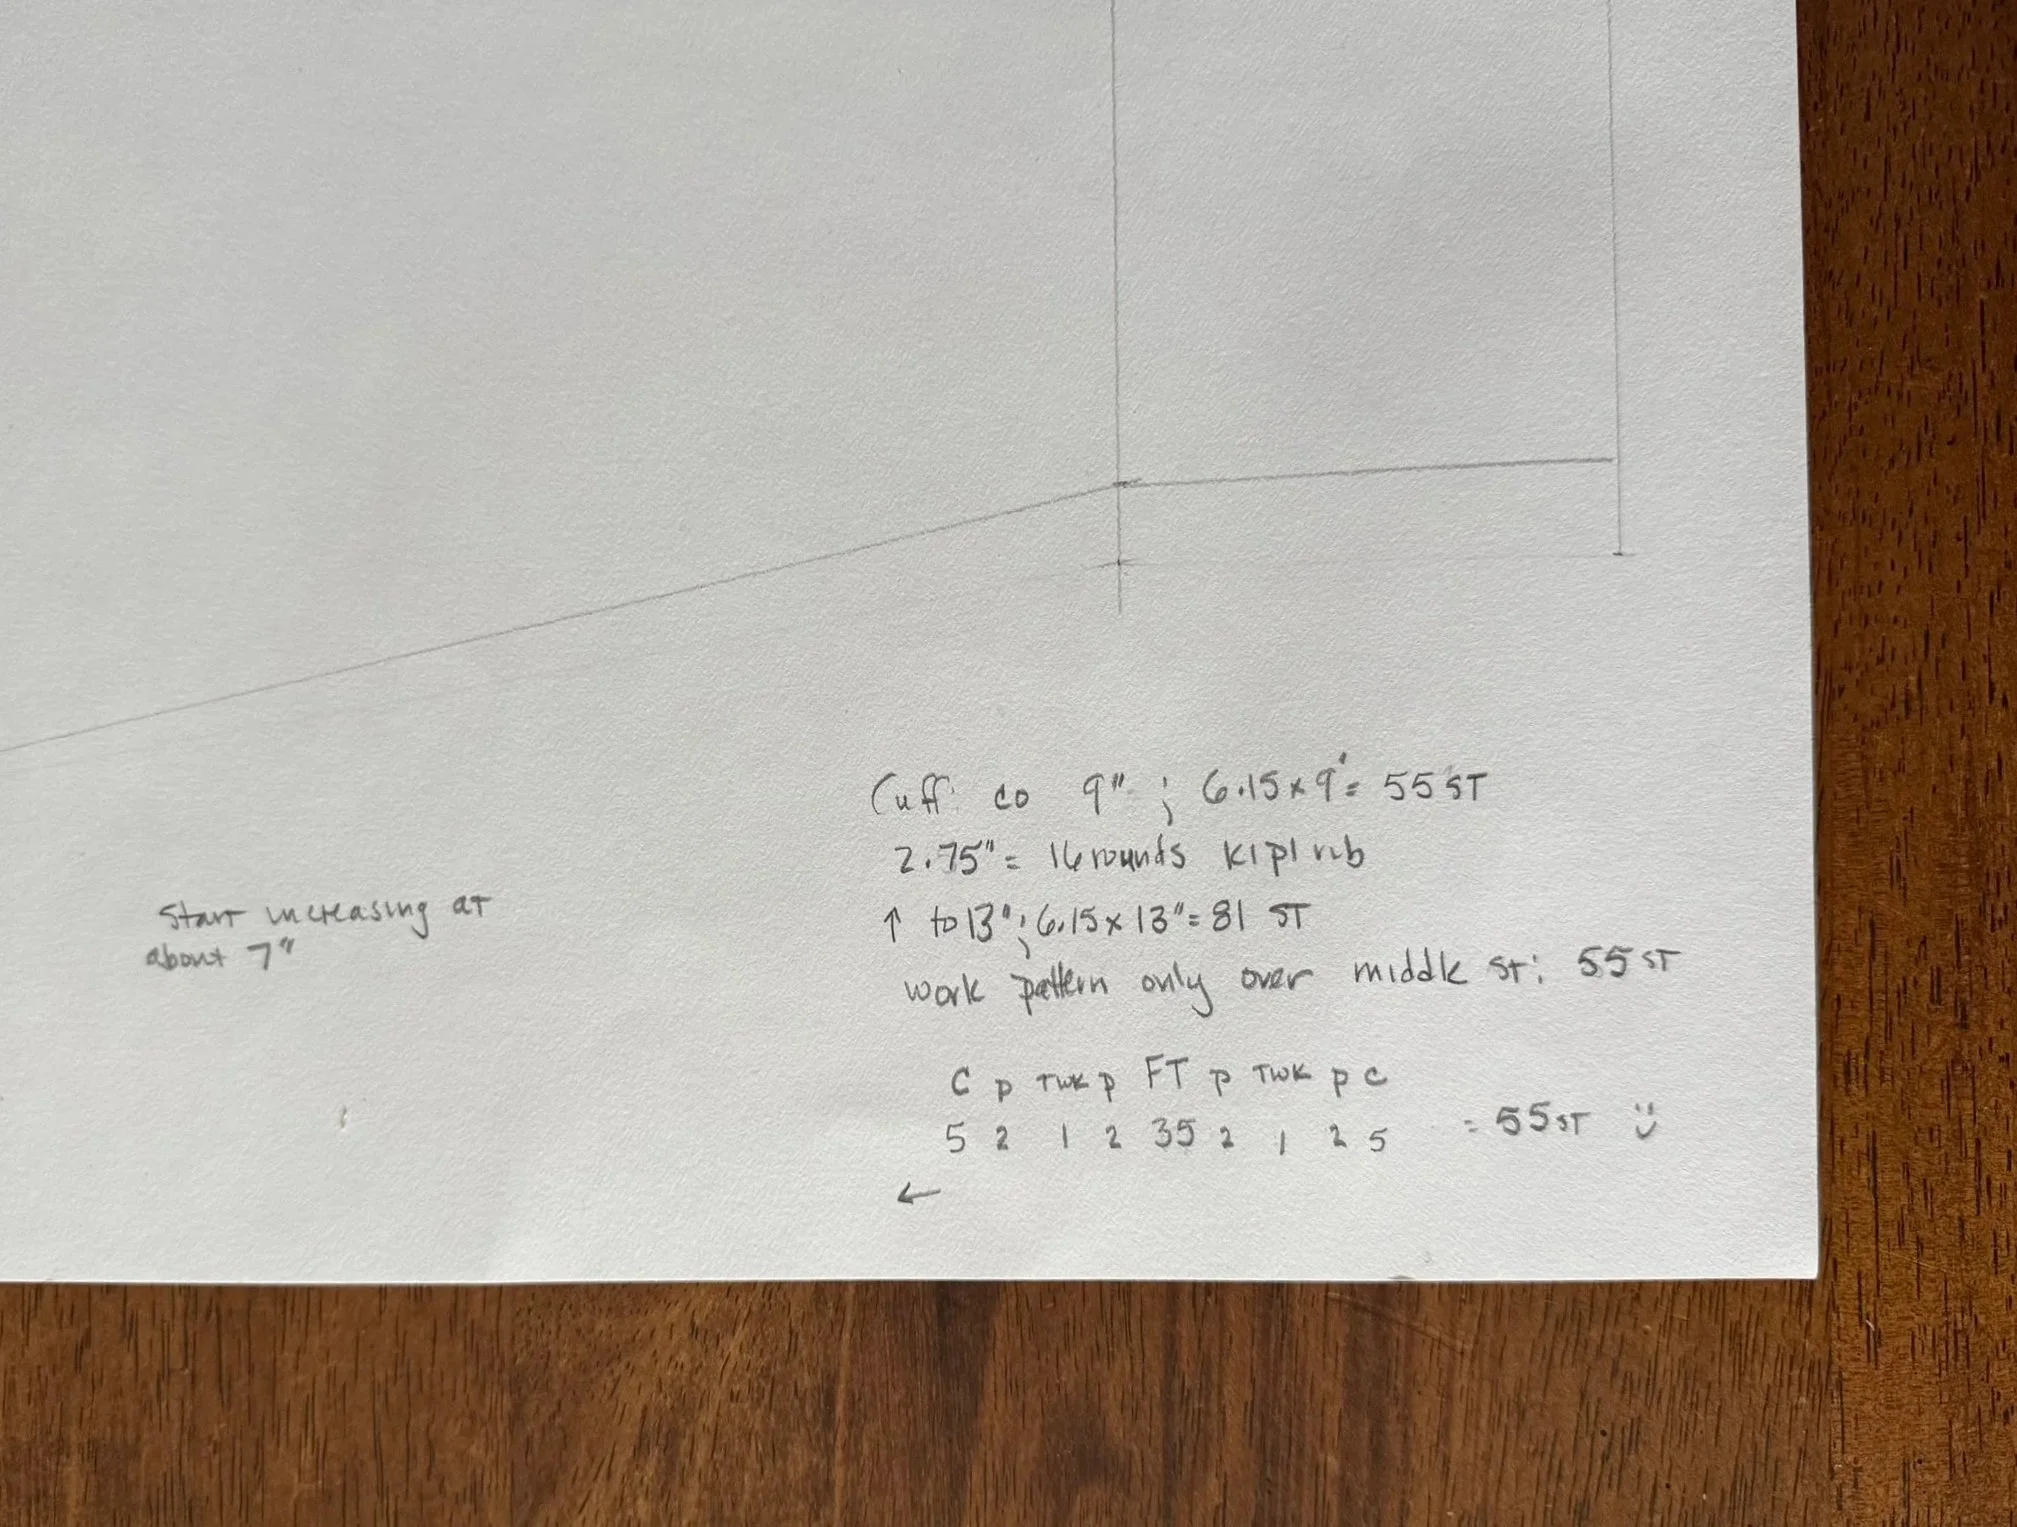 Cuff: CO 9" ; 6.15 x 9" = 55 ST
2.75" = 16 rounds K1 p1 rib
↑ to 13" ; 6.15 x 13" = 81 ST
work pattern only over middle ST: 55 ST
C p TWK p FT p TWK p C
5 2 1 2 35 2 1 2 5 = 55 ST :)
←
Start increasing at
about 7"